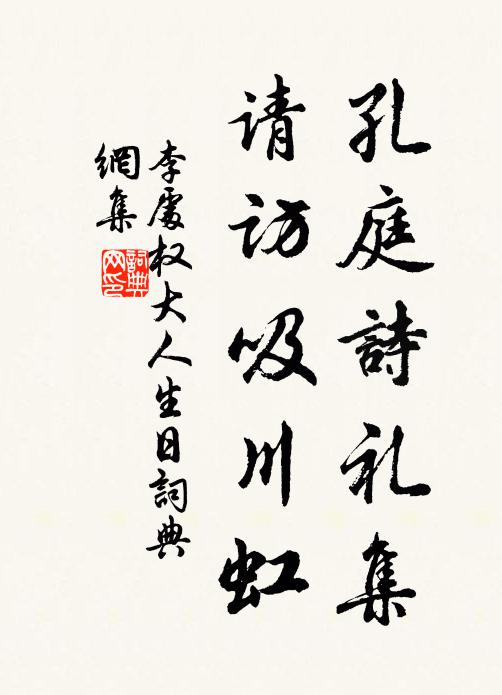 孔庭詩礼集
请访吸川虹
李處权大人生日詞典
網集
詞典网印